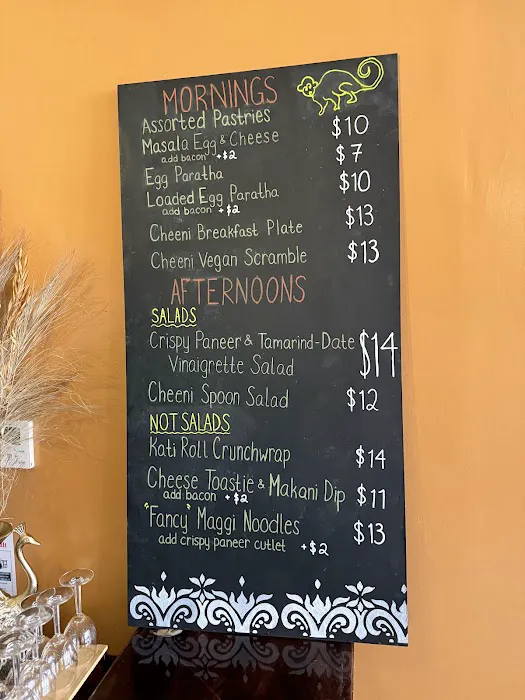 MORNINGS
Assorted Pastries
Masala Egg & Cheese $10
add bacon +$2
Egg Paratha $7
Loaded Egg Paratha $10
add bacon +$2
Cheeni Breakfast Plate $13
Cheeni Vegan Scramble $13
AFTERNOONS
SALADS
Crispy Paneer & Tamarind-Date $14
Vinaigrette Salad
Cheeni Spoon Salad $12
NOT SALADS
Kati Roll Crunchwrap $14
Cheese Toastie & Makani Dip $11
add bacon +$2
"Fancy" Maggi Noodles $13
add crispy paneer cutlet +$2